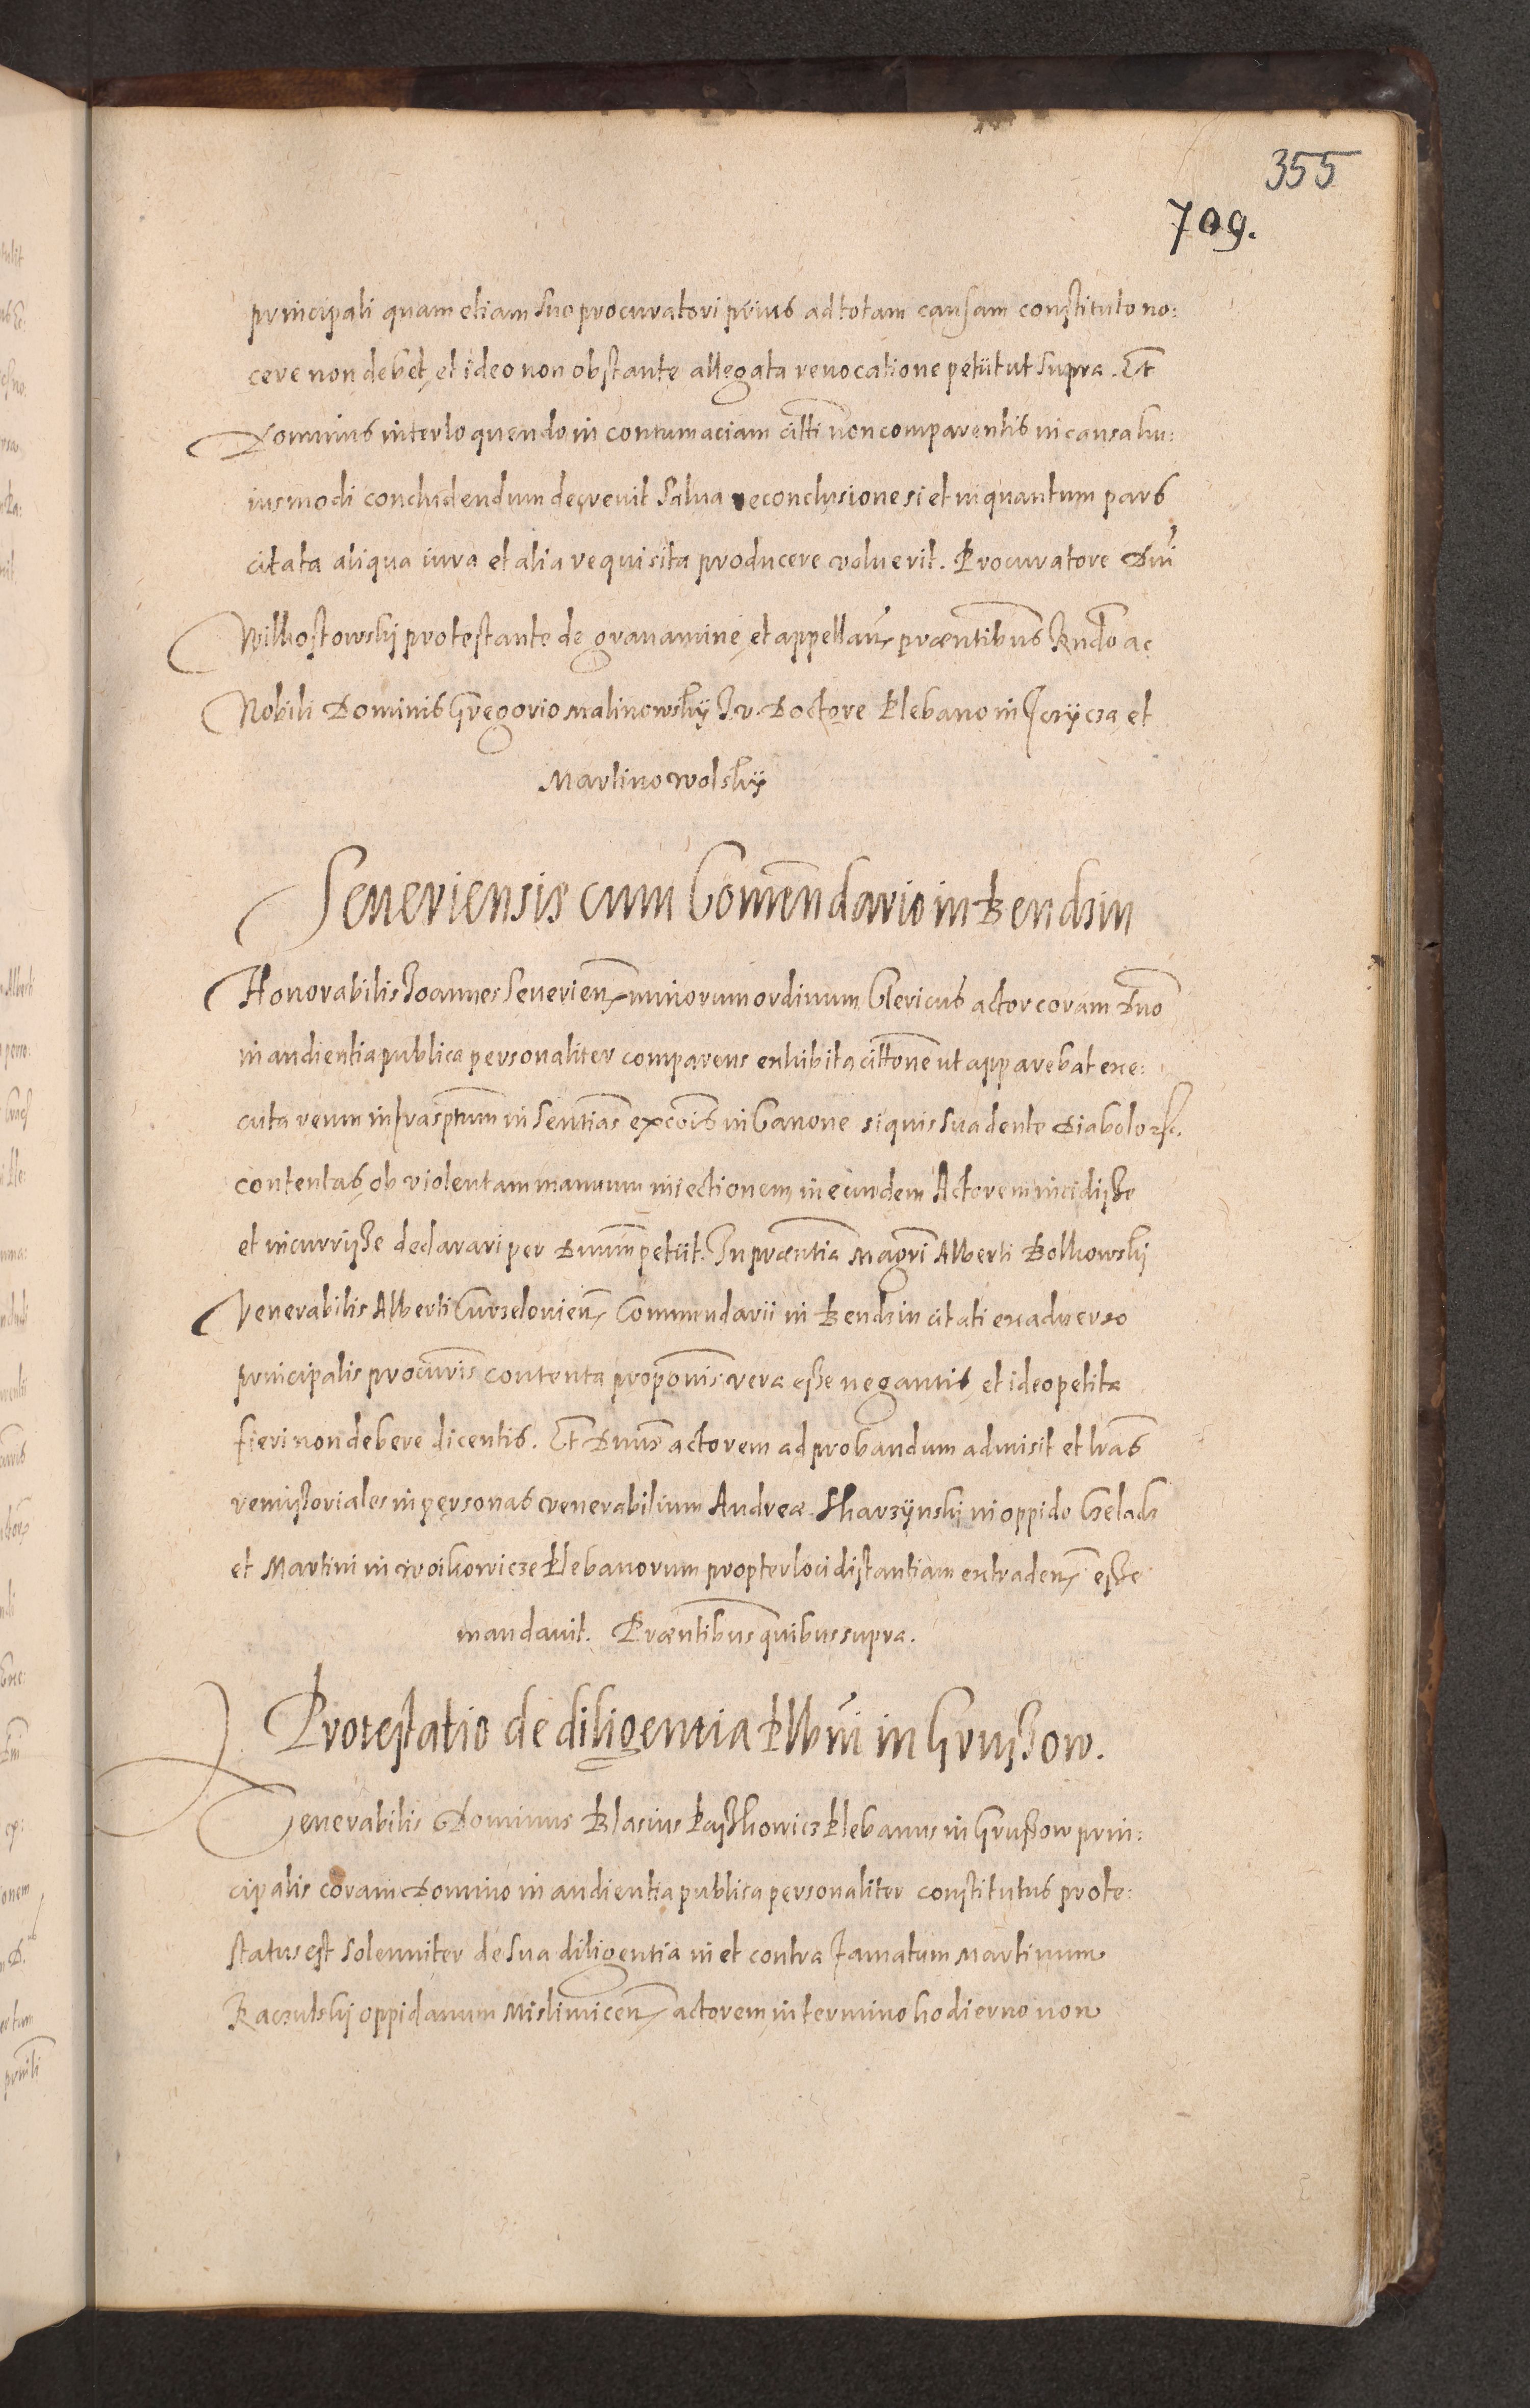 355
709.
principali quam etiam suo procuratori prius ad totam causam constituto no:
cere non debet, et ideo non obstante allegata reuocatione petiit ut supra. Et
Dominus interloquendo in contumaciam citti non comparentis in causa hu:
iusmodi concludendum decreuit salua reconclusione si et in quantum pars
citata aliqua iura et alia requisita producere voluerit. Procuratore Dni
Wilkostowskij protestante de grauamine, et appellan præntibus Rndo ac
Nobili Dominis Gregorio Malinowskÿ J. v. Doctore Plebano in et
Martino Wolskÿ
Seueriensis cum Comendario in Bendzin
Honorabilis Joannes Seuerien minorum ordinum Clericus actor coram Dno
in audientia publica personaliter comparens exhibita cittone ut apparebat exe:
cuta reum infrasptum in sentias excois in Canone si quis suadente Diabolo etc.
contentas, ob violentam manuum iniectionem in eundem Actorem incidisse
et incurrisse declarari per Dnum petiit. In præntia Magri Alberti Bolkowski
Venerabilis Alberti Curzelouien Commendarii in Bendzin citati ex aduerso
principalis procuris contenta proponis vera esse negantis, et ideo petita
fieri non debere dicentis. Et Dnus actorem ad probandum admisit et lras
remissoriales in personas venerabilium Andreæ Skarzÿnski in oppido Czeladz
et Martini in Woikowicze Plebanorum propter loci distantiam extraden esse
mandauit. Præntibus quibus supra.
Protestatio de diligentia Plbni in Grussow.
Venerabilis Dominus Blasius Paszkowicz Plebanus in Grussow prin:
cipalis coram Domino in audientia publica personaliter constitutus prote:
status est solenniter de sua diligentia in et contra famatum Martinum
Raczulskij oppidanum Mislimicen actorem in termino hodierno non